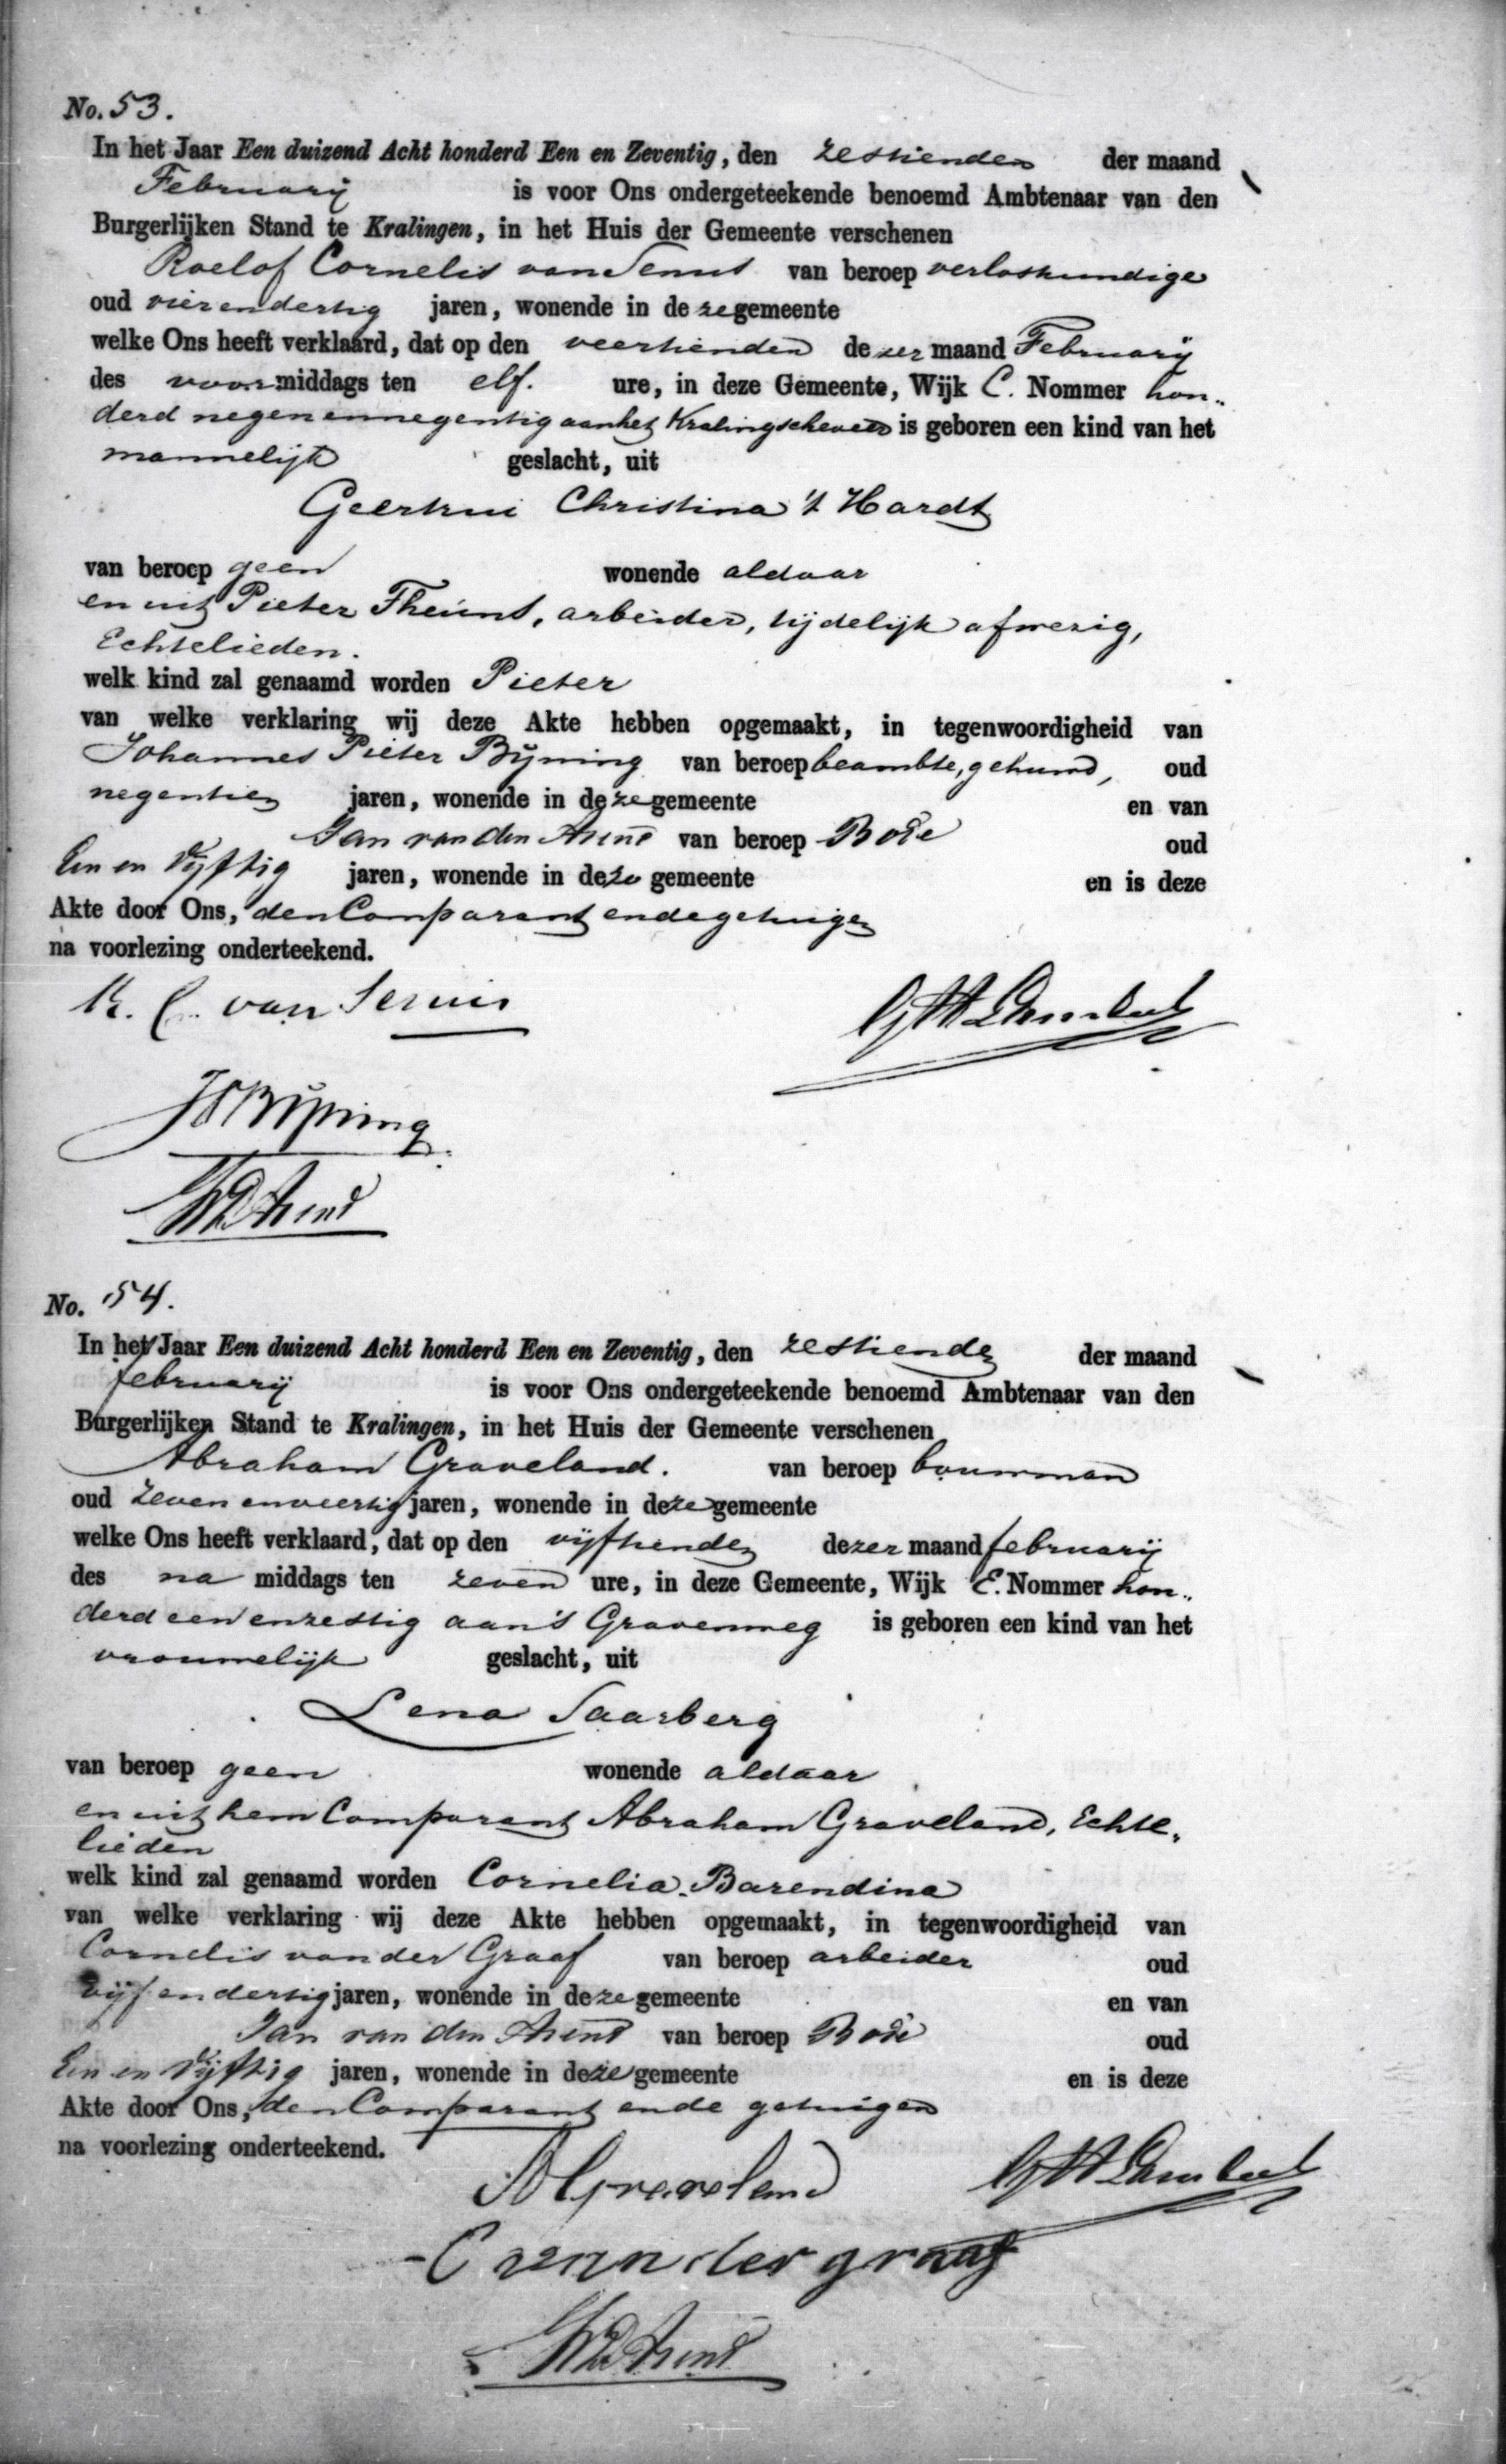 No. 53.
In het Jaar Een duizend Acht honderd Een en Zeventig, den zestienden der maand
February is voor Ons ondergeteekende benoemd Ambtenaar van den
Burgerlijken Stand te Kralingen, in het Huis der Gemeente verschenen
Roelof Cornelis van Senus van beroep verloskundige
oud vier en dertig jaren, wonende in deze gemeente
welke Ons heeft verklaard, dat op den veertienden dezer maand February
des voormiddags ten elf. ure, in deze Gemeente, Wijk C. Nommer hon„
derd negen en negentig aan het Kralingscheveer is geboren een kind van het
mannelijk geslacht, uit
Geertrui Christina 't Hardt
van beroep geen wonende aldaar
en uit Pieter Theuns, arbeider, tijdelijk afwezig,
Echtelieden.
welk kind zal genaamd worden Pieter
van welke verklaring wij deze Akte hebben opgemaakt, in tegenwoordigheid van
Johannes Pieter Bijning van beroep beambte, gehuwd, oud
negentien jaren, wonende in deze gemeente en van
Jan van den Arend van beroep Bode oud
Een en Vijftig jaren, wonende in deze gemeente en is deze
Akte door Ons, den Comparant en de getuigen
na voorlezing onderteekend.
R. C. van Senus
JP Bijning
JVD Arend
No. 54.
In het Jaar Een duizend Acht honderd Een en Zeventig, den zestienden der maand
february is voor Ons ondergeteekende benoemd Ambtenaar van den
Burgerlijken Stand te Kralingen, in het Huis der Gemeente verschenen
Abraham Graveland. van beroep bouwman
oud zeven en veertig jaren, wonende in deze gemeente
welke Ons heeft verklaard, dat op den vijftienden dezer maand february
des na middags ten zeven ure, in deze Gemeente, Wijk E. Nommer hon„
derd een en zestig aan 's Gravenweg is geboren een kind van het
vrouwelijk geslacht, uit
Lena Saarberg
van beroep geen wonende aldaar
en uit hem Comparant Abraham Graveland, Echte„
lieden
welk kind zal genaamd worden Cornelia Barendina
van welke verklaring wij deze Akte hebben opgemaakt, in tegenwoordigheid van
Cornelis van der Graaf van beroep arbeider oud
vijf en dertig jaren, wonende in deze gemeente en van
Jan van den Arend van beroep Bode oud
Een en Vijftig jaren, wonende in deze gemeente en is deze
Akte door Ons, den Comparant en de getuigen
na voorlezing onderteekend.
A Graveland
C van der graaf
JVD Arend